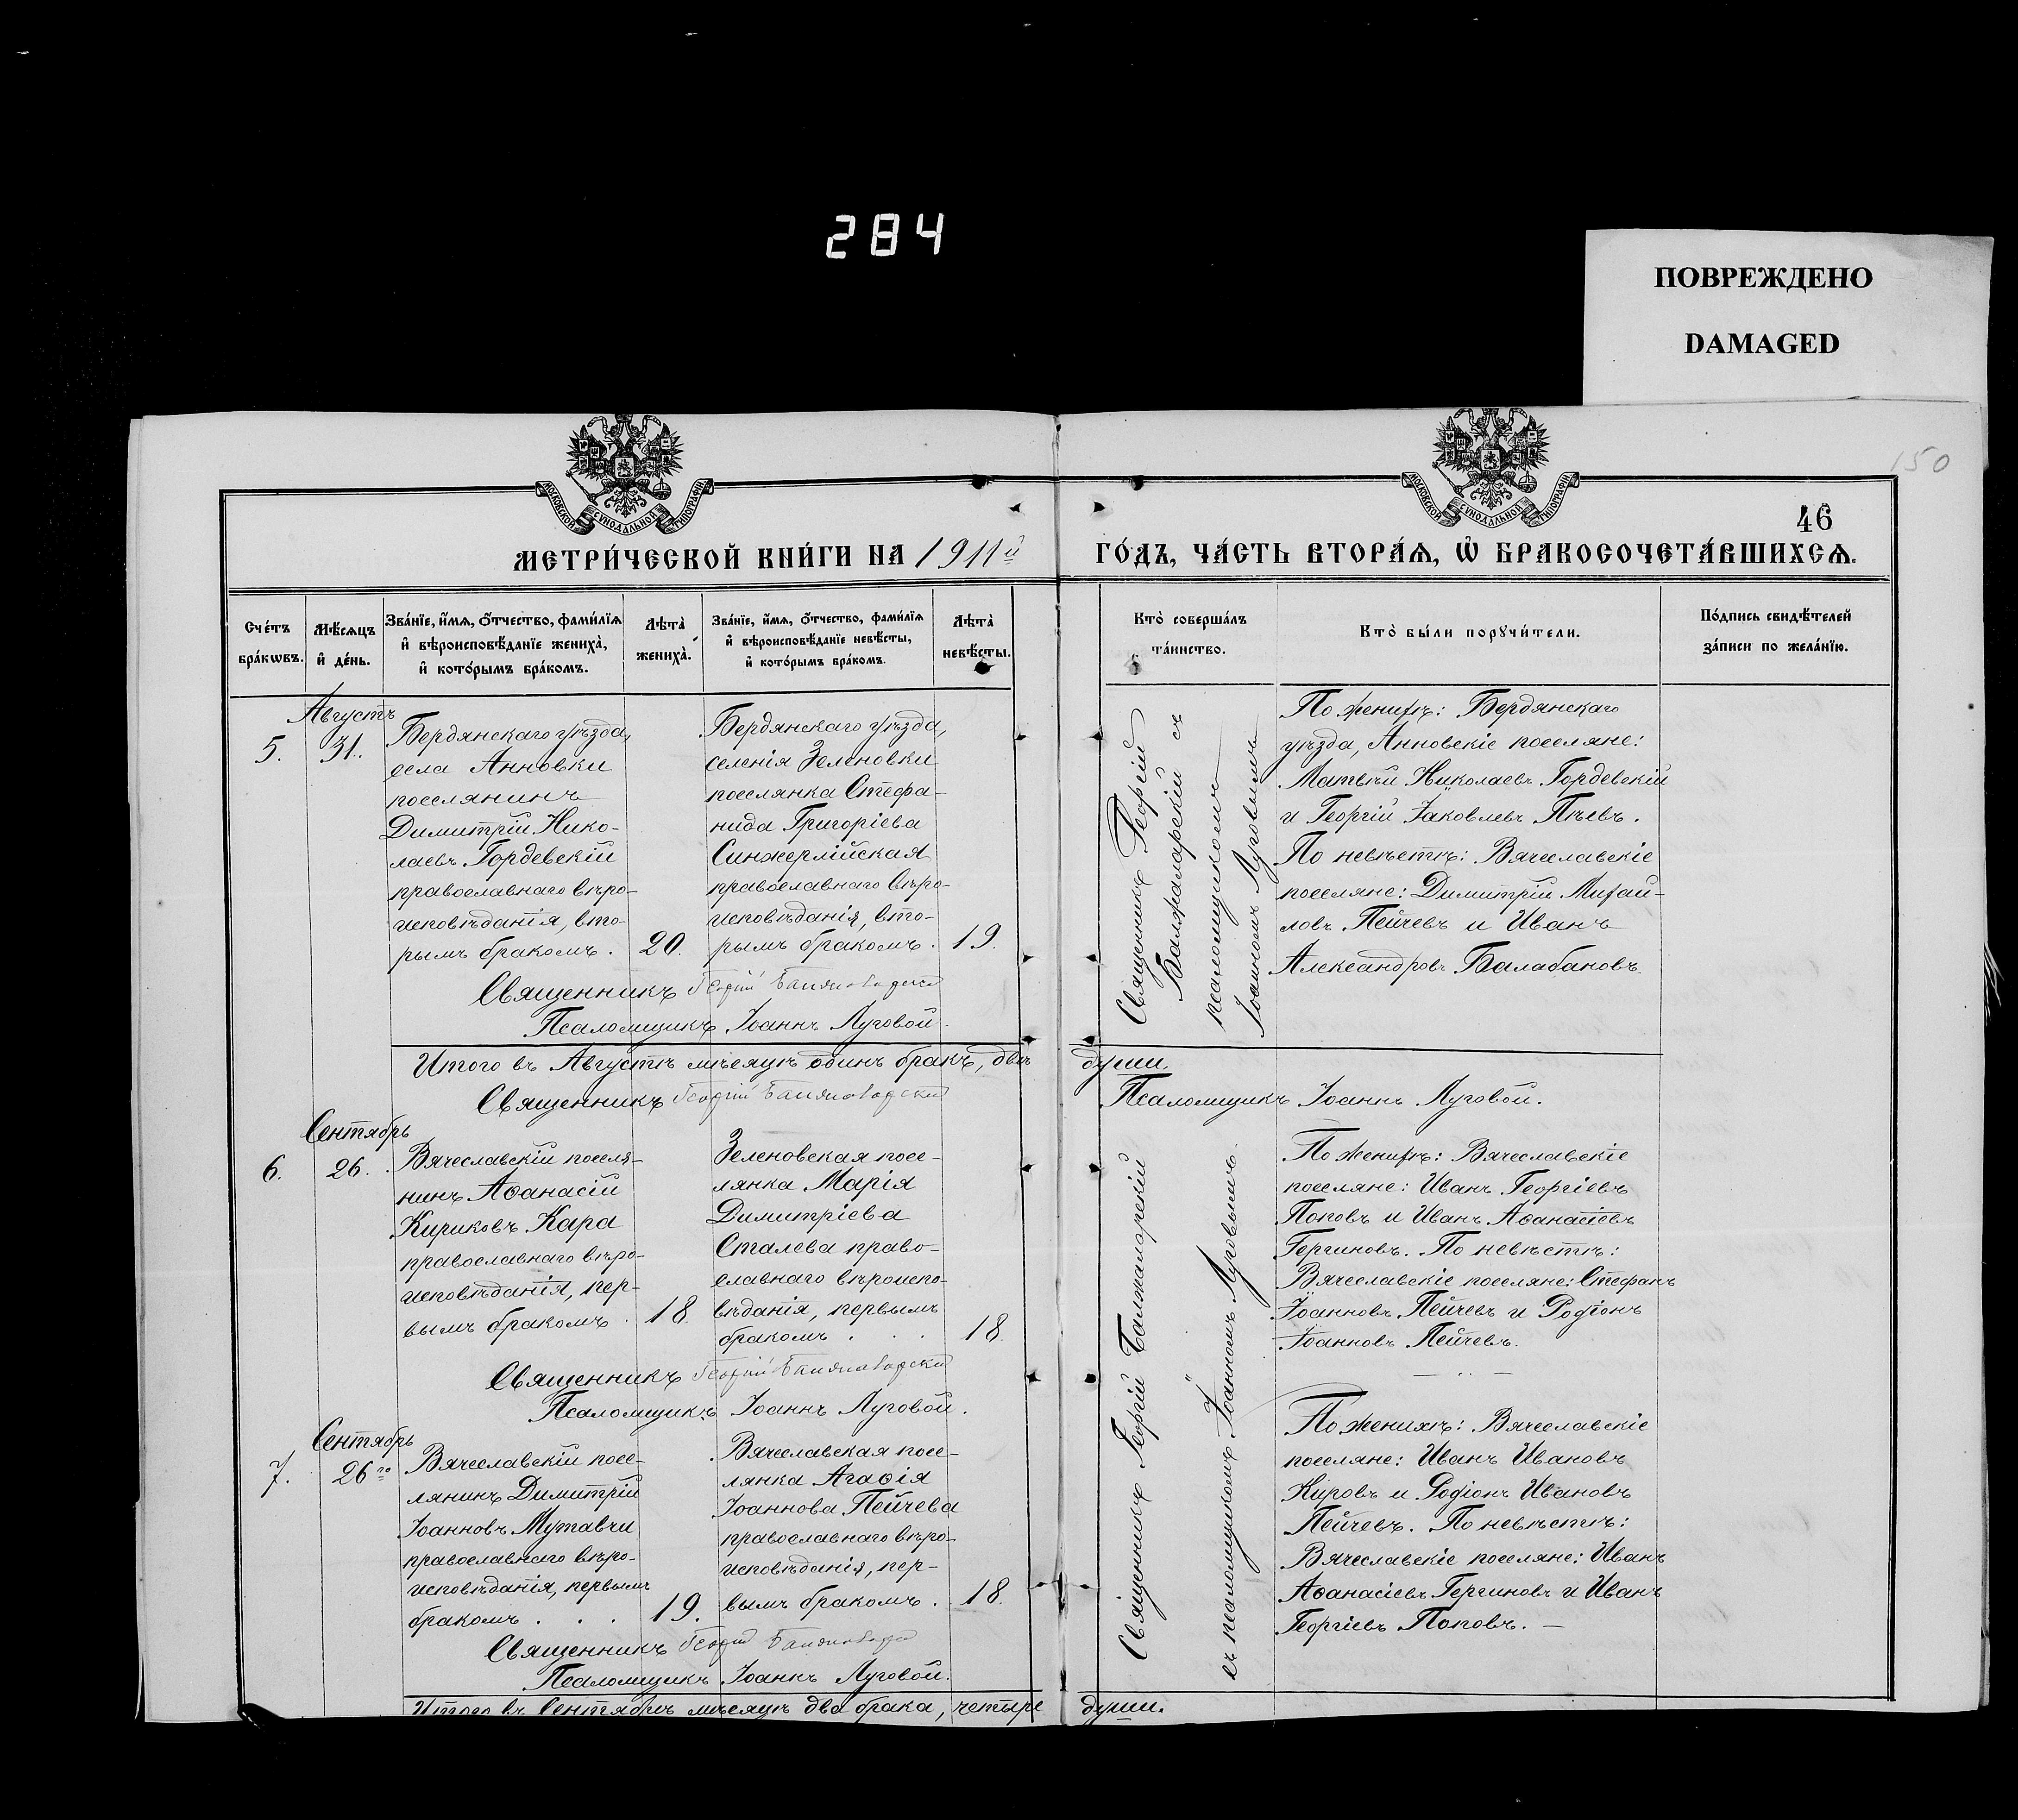 284
ПОВРЕЖДЕНО
DAMAGED
150
46
МОСКОВСКОЙ СѴНОДАЛЬНОЙ ТИПОГРАФІИ
МОСКОВСКОЙ СѴНОДАЛЬНОЙ ТИПОГРАФІИ
МЕТРИ́ЧЕСКОЙ КНИ́ГИ НА 1911й
ГО́ДЪ, ЧА́СТЬ ВТОРА́Ѧ, Ѡ҆ БРАКОСОЧЕТА́ВШИХСѦ.
Сче́тъ
бра́кѡвъ.
Мѣ́сѧцъ
и҆ де́нь.
Зва́нїе, и҆́мѧ, ѻ҆́тчество, фами́лїѧ
и҆ вѣроисповѣ́данїе жениха̀,
и҆ кото́рымъ бра́комъ.
Лѣта̀
жениха̀.
Зва́нїе, и҆́мѧ, ѻ҆́тчество, фами́лїѧ
и҆ вѣроисповѣ́данїе невѣ́сты,
и҆ кото́рымъ бра́комъ.
Лѣта̀
невѣ́сты.
Кто̀ соверша́лъ
та́инство.
Кто̀ бы́ли порꙋчи́тели.
По́дпись свидѣ́телей
за́писи по жела́нїю.
5.
Августъ
31.
Бердянскаго уѣзда,
села Анновки
поселянинъ
Димитрій Нико-
лаевъ Гордевскій
православнаго вѣро-
исповѣданія, вто-
рымъ бракомъ.
20.
Бердянскаго уѣзда,
селенія Зеленовки
поселянка Стефа-
нида Григоріева
Синжерлійская
православнаго вѣро-
исповѣданія, вто-
рымъ бракомъ.
19.
Священникъ Георгій
Балжаларскій съ
псаломщикомъ
Іоанномъ Луговымъ
По женихѣ: Бердянскаго
уѣзда, Анновскіе поселяне:
Матвѣй Николаевъ Гордевскій
и Георгій Іаковлевъ Пѣевъ.
По невѣстѣ: Вячеславскіе
поселяне: Димитрій Михай-
ловъ Пейчевъ и Иванъ
Александровъ Балабановъ.
Священникъ Георгій Балжаларскій
Псаломщикъ Іоаннъ Луговой.
Итого въ Августѣ мѣсяцѣ одинъ бракъ, двѣ души.
Священникъ Георгій Балжаларскій
Псаломщикъ Іоаннъ Луговой.
6.
Сентябрь
26.
Вячеславскій поселя-
нинъ Аѳанасій
Кириковъ Кара
православнаго вѣро-
исповѣданія, пер-
вымъ бракомъ.
18.
Зеленовская посе-
лянка Марія
Димитріева
Сталева право-
славнаго вѣроиспо-
вѣданія, первымъ
бракомъ . . .
18.
Священникъ Георгій Балжаларскій
съ псаломщикомъ Іоанномъ Луговымъ.
По женихѣ: Вячеславскіе
поселяне: Иванъ Георгіевъ
Поповъ и Иванъ Аѳанасіевъ
Гергиновъ. По невѣстѣ:
Вячеславскіе поселяне: Стефанъ
Іоанновъ Пейчевъ и Родіонъ
Іоанновъ Пейчевъ.
Священникъ Георгій Балжаларскій
Псаломщикъ Іоаннъ Луговой.
7.
Сентябрь
26го
Вячеславскій посе-
лянинъ Димитрій
Іоанновъ Мутавчи
православнаго вѣро-
исповѣданія, первымъ
бракомъ . . .
19.
Вячеславская посе-
лянка Агаѳія
Іоаннова Пейчева
православнаго вѣро-
исповѣданія, пер-
вымъ бракомъ.
18.
По женихѣ: Вячеславскіе
поселяне: Иванъ Ивановъ
Кировъ и Родіонъ Ивановъ
Пейчевъ. По невѣстѣ:
Вячеславскіе поселяне: Иванъ
Аѳанасіевъ Гергиновъ и Иванъ
Георгіевъ Поповъ. —
Священникъ Георгій Балжаларскій
Псаломщикъ Іоаннъ Луговой.
Итого въ Сентябрѣ мѣсяцѣ два брака, четыре души.